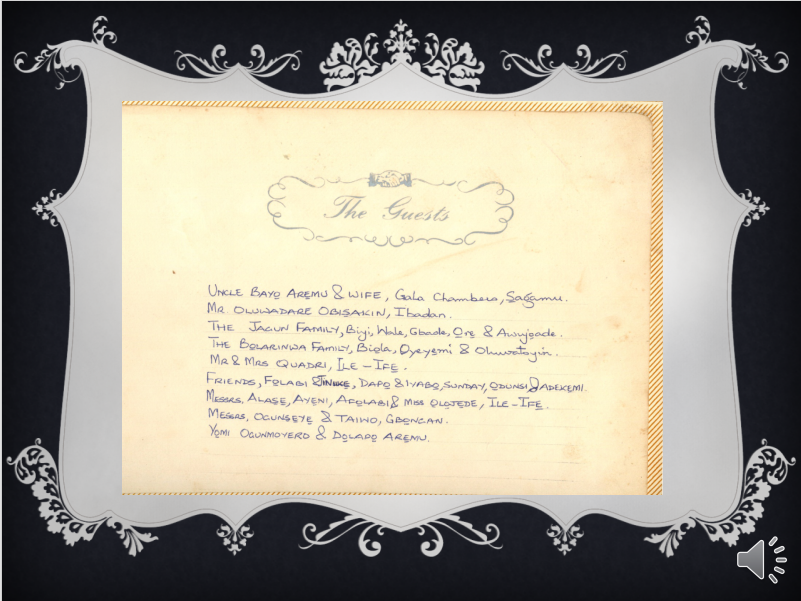 The Guests
UNCLE BAYO AREMU & WIFE, Gala Chambers, Sagamu.
MR OLUWADARE OBISAKIN, Ibadan.
THE JAGUN FAMILY, Biyi, Wale, Gbade, Ore & Awujoade.
THE BOLARINWA FAMILY, Biola, Oyeyemi & Oluwatoyin.
MR & MRS QUADRI, ILE-IFE.
FRIENDS, FOLABI & DAPO & IYABO, SUNDAY, ODUNSI & ADEKEMI.
MESSRS. ALASE, AYENI, AFOLABI & MISS OLOJEDE, ILE-IFE.
MESSRS. OGUNSEYE & TAIWO, GBONGAN.
YOMI OGUNMOYERO & DOLAPO AREMU.